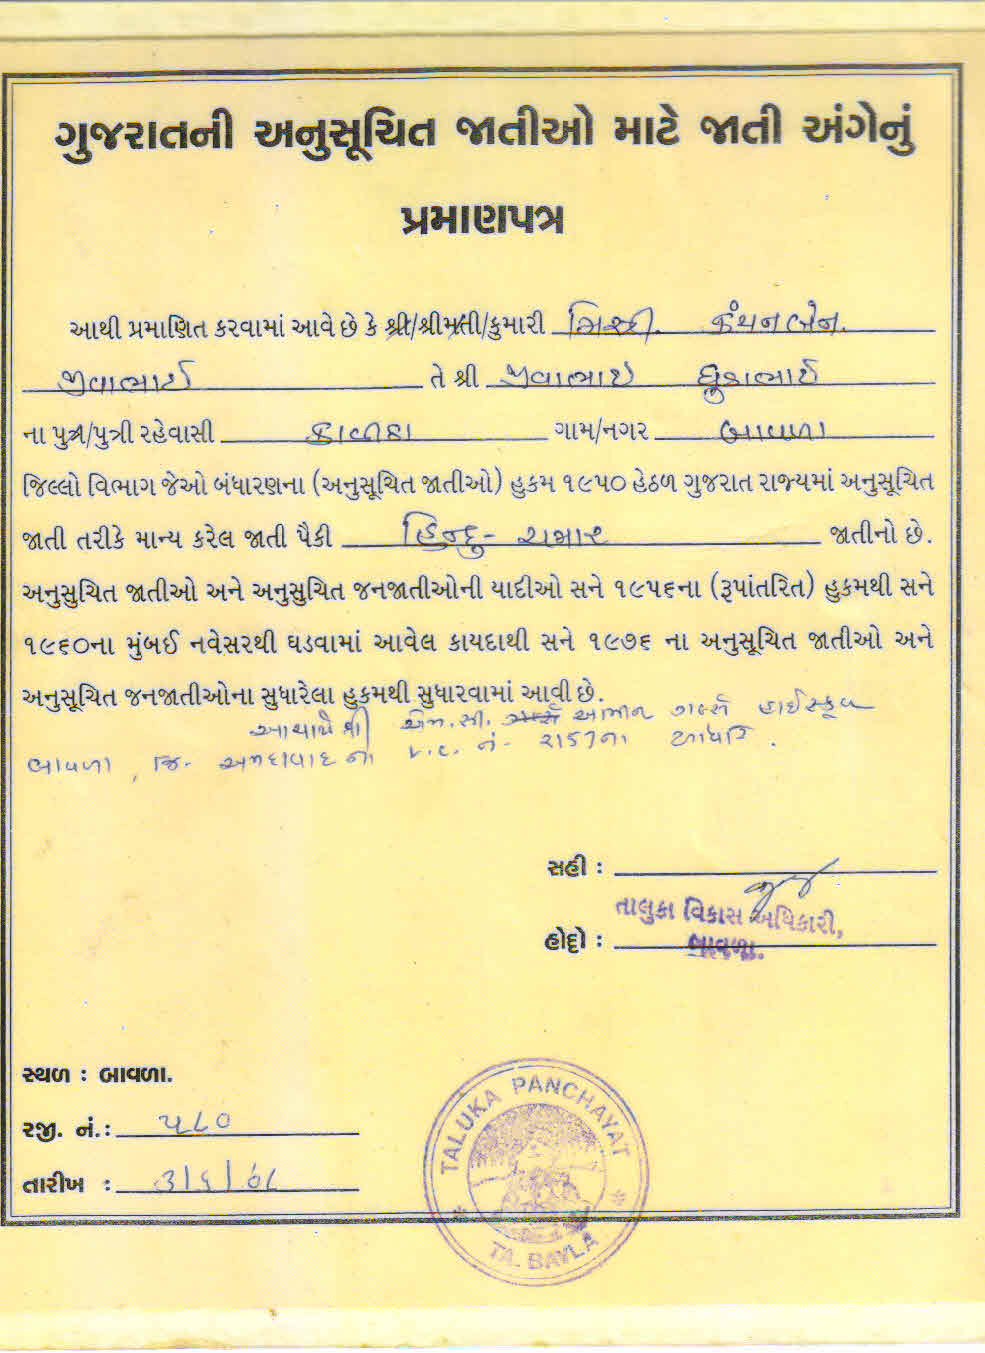 ગુજરાતની અનુસૂચિત જાતીઓ માટે જાતી અંગેનું
પ્રમાણપત્ર
આથી પ્રમાણિત કરવામાં આવે છે કે શ્રી/શ્રીમતી/કુમારી મિસ્ત્રી. કંચનબેન.
જીવાભાઈ તે શ્રી જીવાભાઈ ધુડાભાઈ
ના પુત્ર/પુત્રી રહેવાસી કાવીઠા ગામ/નગર બાવળા
જિલ્લો વિભાગ જેઓ બંધારણના (અનુસૂચિત જાતીઓ) હુકમ ૧૯૫૦ હેઠળ ગુજરાત રાજ્યમાં અનુસૂચિત
જાતી તરીકે માન્ય કરેલ જાતી પૈકી હિન્દુ - ચમાર જાતીનો છે.
અનુસુચિત જાતીઓ અને અનુસુચિત જનજાતીઓની યાદીઓ સને ૧૯૫૬ના (રૂપાંતરિત) હુકમથી સને
૧૯૬૦ના મુંબઈ નવેસરથી ઘડવામાં આવેલ કાયદાથી સને ૧૯૭૬ ના અનુસૂચિત જાતીઓ અને
અનુસૂચિત જનજાતીઓના સુધારેલા હુકમથી સુધારવામાં આવી છે.
આચાર્ય શ્રી એમ.સી. અમીન ગર્લ્સ હાઈસ્કૂલ
બાવળા, જિ- અમદાવાદ ના L.C. નં- ના આધારે.
સહી :
તાલુકા વિકાસ અધિકારી,
હોદ્દો : બાવળા.
સ્થળ : બાવળા.
રજી. નં.: ૫૮૦
તારીખ : ૩/૬/૦૮
TALUKA PANCHAYAT
TA. BAVLA